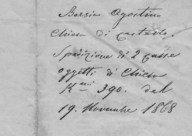 Bersin Agostino
Chiesa di
Spedizione di 2 casse
oggetti di Chiesa
K.mi 390. del
19. Novembre 1868